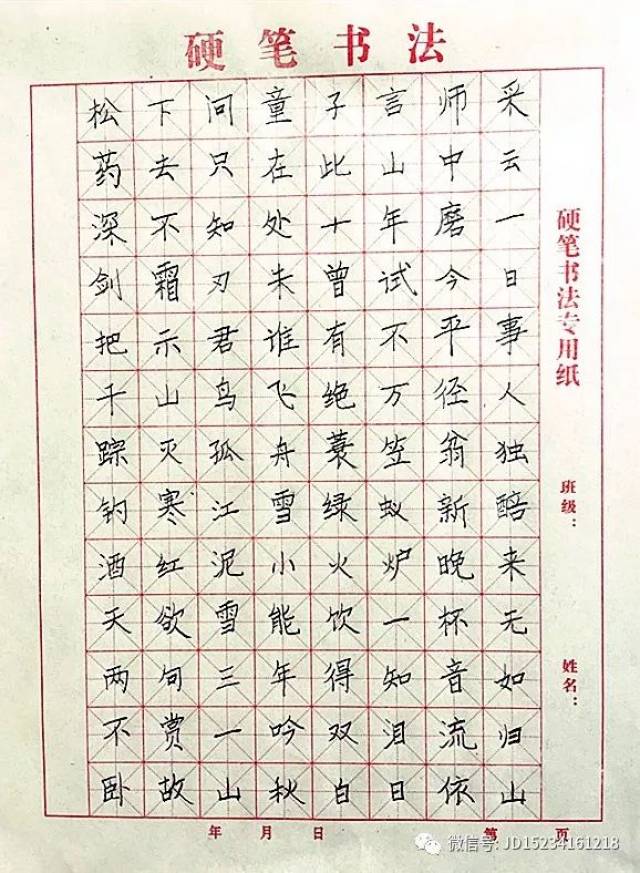 硬笔书法
松下问童子言师采
药去只在此山中云
深不知处十年磨一
剑霜刃未曾试今日
把示君谁有不平事
千山鸟飞绝万径人
踪灭孤舟蓑笠翁独
钓寒江雪绿蚁新醅
酒红泥小火炉晚来
天欲雪能饮一杯无
两句三年得知音如
不赏一吟双泪流归
卧故山秋白日依山
硬笔书法专用纸
班级：
姓名：
年 月 日
第 页
微信号: JD15234161218